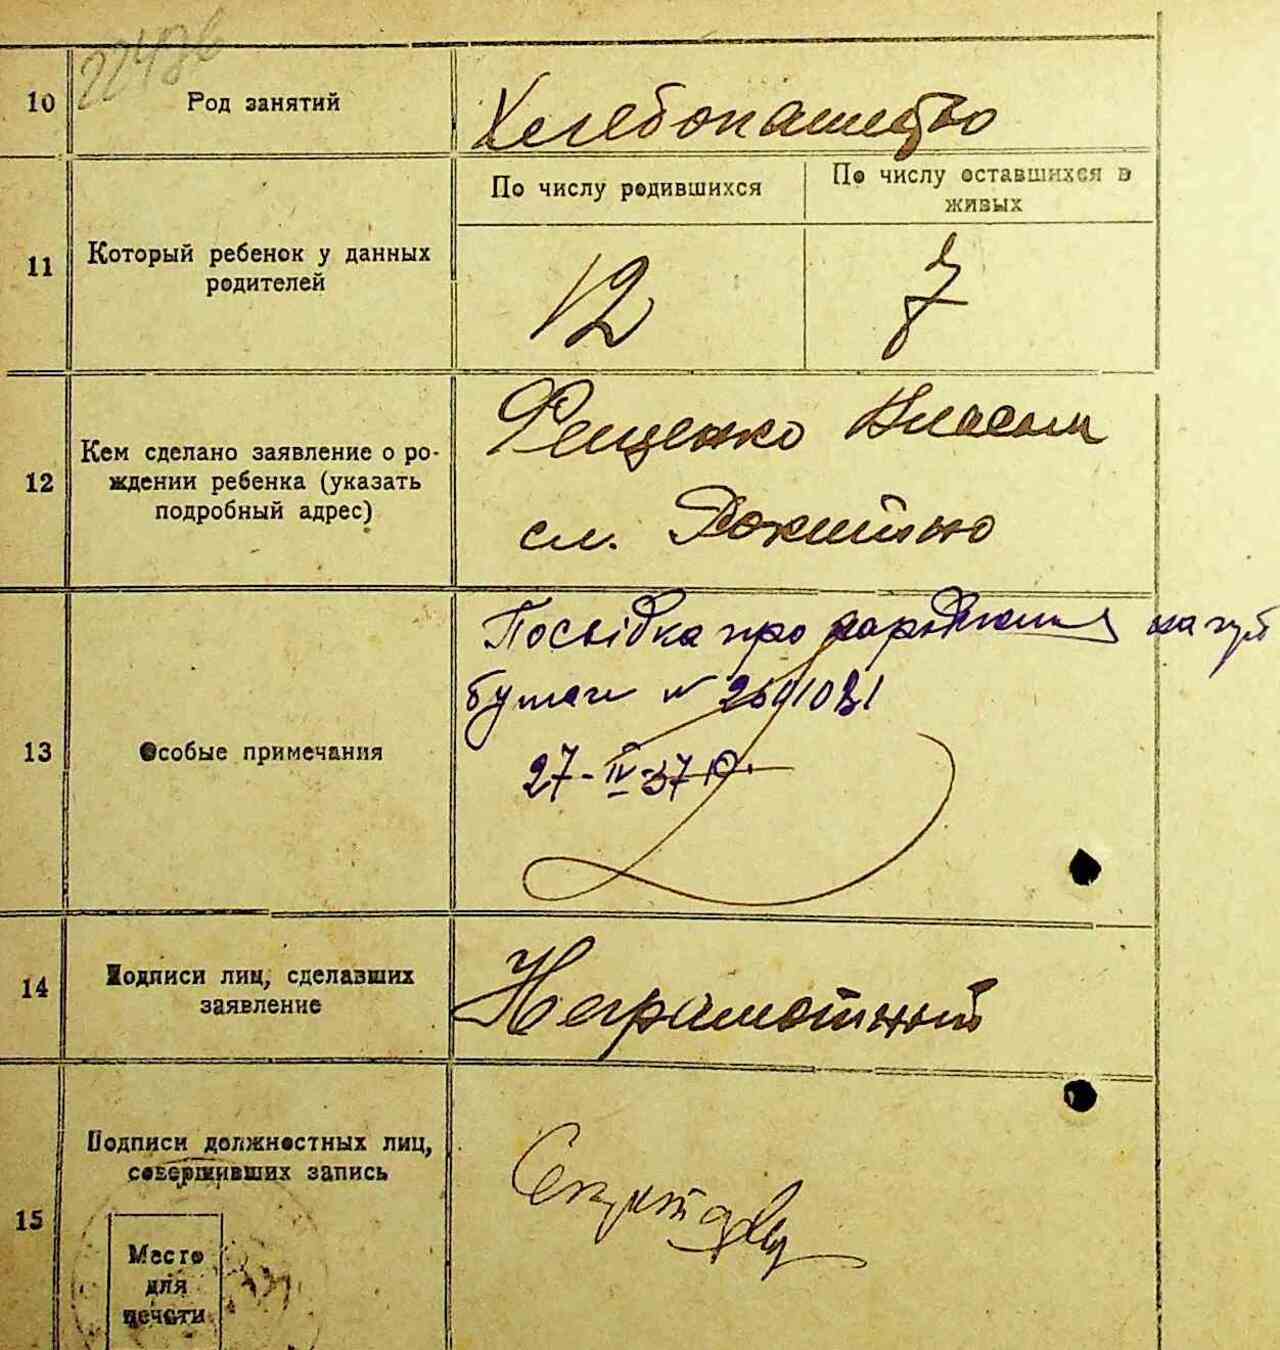 22436
10
Род занятий
Хлебопашество
11
Который ребенок у данных
родителей
По числу родившихся
По числу оставшихся в
живых
12
7
12
Кем сделано заявление о ро-
ждении ребенка (указать
подробный адрес)
Фещенко Власом
сл. Рокитно
13
Особые примечания
Посвідка про народження на
бумаги №
27-IV-37 р.
14
Подписи лиц, сделавших
заявление
Неграмотный
15
Подписи должностных лиц,
совершивших запись
Место
для
печати
Секрет